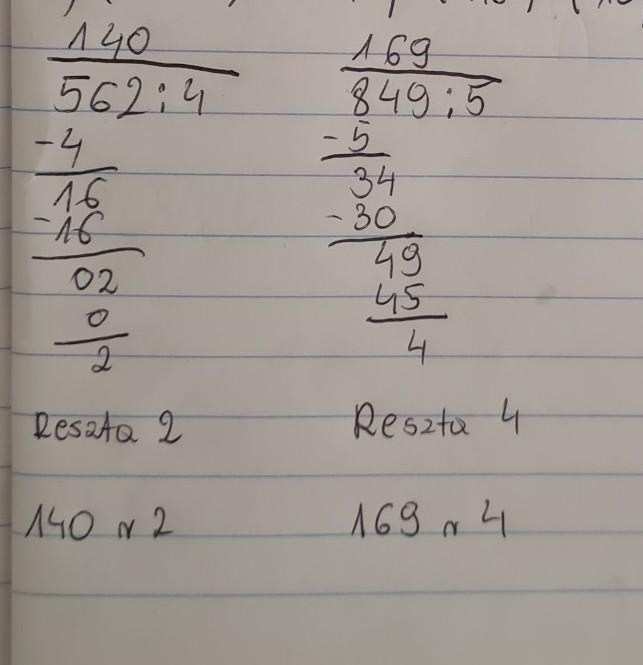 140
562:4
-4
16
-16
02
0
2
Reszta 2
140 r 2
169
849:5
-5
34
-30
49
45
4
Reszta 4
169 r 4